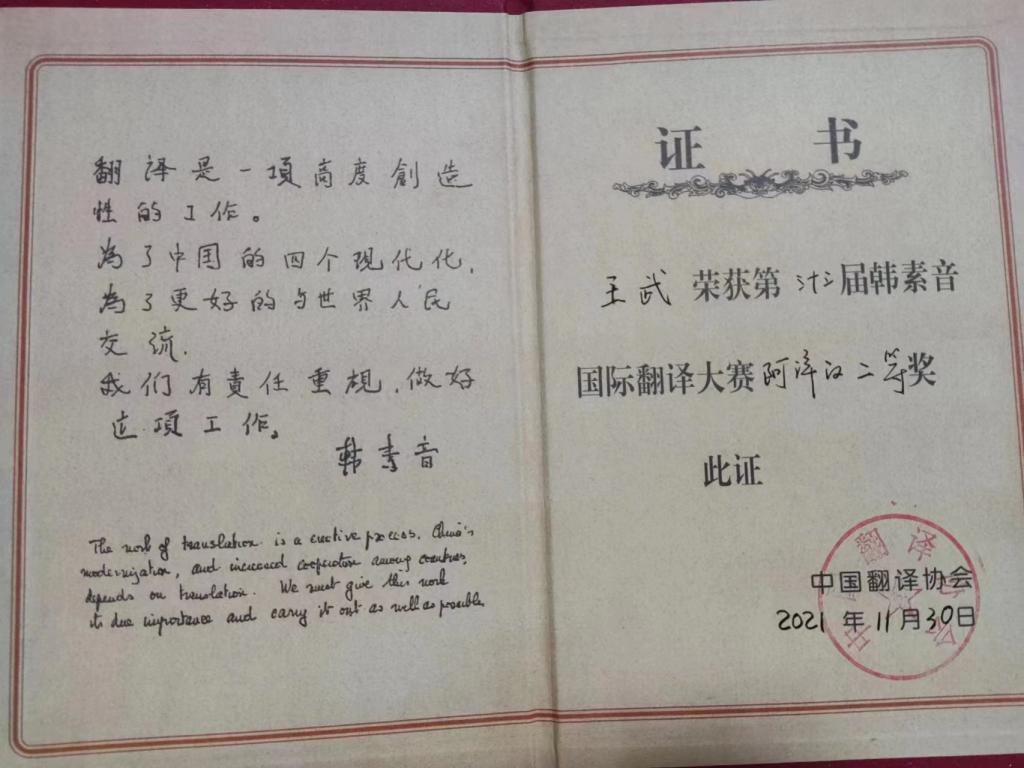 翻译是一項高度創造
性的工作。
為了中国的四个现代化,
為了更好的与世界人民
交流.
我们有責任重視,做好
这項工作。
韩素音
The work of translation is a creative process. China's
modernization, and increased cooperation among countries,
depends on translation. We must give this work
its due importance and carry it out as well as possible.
证书
王武 荣获第卅三届韩素音
国际翻译大赛阿译汉二等奖
此证
中国翻译协会
2021年11月30日